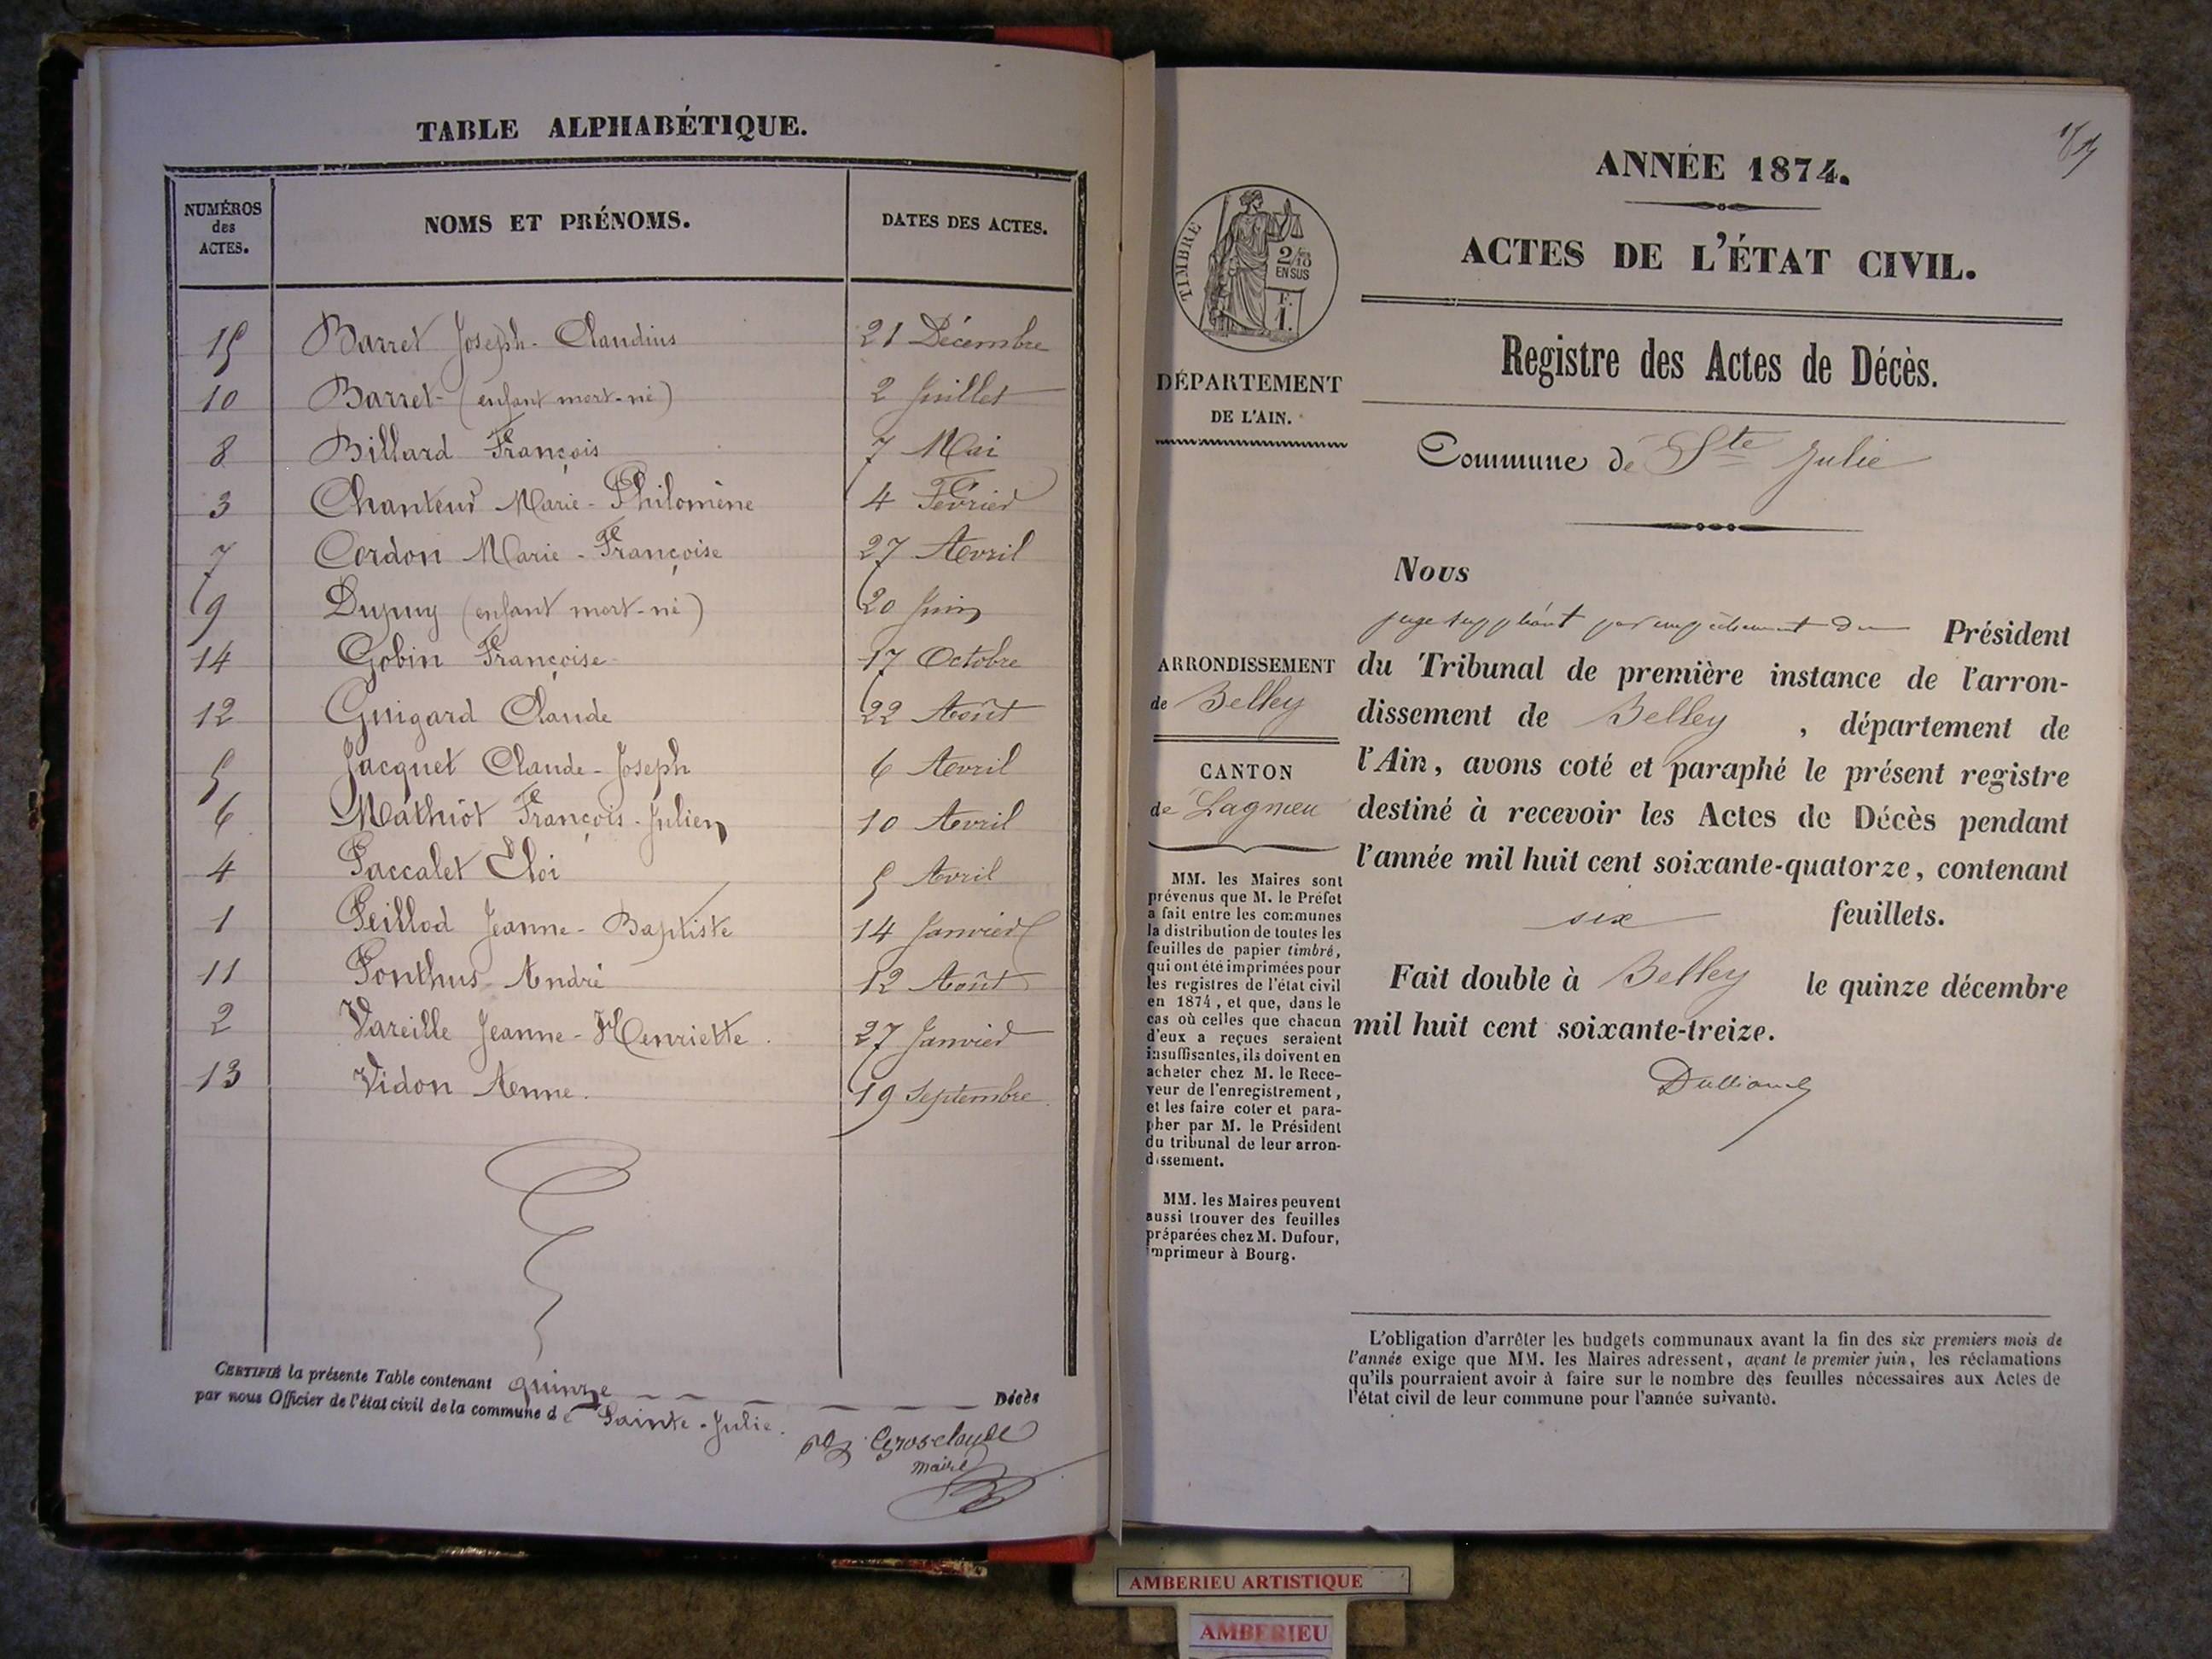 TABLE ALPHABÉTIQUE.
NUMÉROS des ACTES.
NOMS ET PRÉNOMS.
DATES DES ACTES.
15 Barret Joseph-Claudius 21 Décembre
10 Barret (enfant mort-né) 2 Juillet
8 Billard François 7 Mai
3 Chanteur Marie-Philomène 4 Février
7 Cordon Marie-Françoise 27 Avril
9 Dupuy (enfant mort-né) 20 Juin
14 Gobin Françoise 17 Octobre
12 Guigard Claude 22 Août
5 Jacquet Claude-Joseph 6 Avril
6 Mathiot François-Julien 10 Avril
4 Paccalet Eloi 5 Avril
1 Peillod Jeanne-Baptiste 14 Janvier
11 Ponthus André 12 Août
2 Vareille Jeanne-Henriette. 27 Janvier
13 Vidon Anne. 19 Septembre.
CERTIFIÉ la présente Table contenant quinze Décès
par nous Officier de l'état civil de la commune de Sainte-Julie.
Grosclaude
maire
ANNÉE 1874.
ACTES DE L'ÉTAT CIVIL.
TIMBRE
2/10
EN SUS
F.
1.
Registre des Actes de Décès.
DÉPARTEMENT
DE L'AIN.
Commune de Ste Julie
Nous
juge suppléant par empêchement du Président
du Tribunal de première instance de l'arron-
dissement de Belley, département de
l'Ain, avons coté et paraphé le présent registre
destiné à recevoir les Actes de Décès pendant
l'année mil huit cent soixante-quatorze, contenant
six feuillets.
Fait double à Belley le quinze décembre
mil huit cent soixante-treize.
ARRONDISSEMENT
de Belley
CANTON
de Lagnieu
MM. les Maires sont
prévenus que M. le Préfet
a fait entre les communes
la distribution de toutes les
feuilles de papier timbré,
qui ont été imprimées pour
les registres de l'état civil
en 1874, et que, dans le
cas où celles que chacun
d'eux a reçues seraient
insuffisantes, ils doivent en
acheter chez M. le Rece-
veur de l'enregistrement,
et les faire coter et para-
pher par M. le Président
du tribunal de leur arron-
dissement.
MM. les Maires peuvent
aussi trouver des feuilles
préparées chez M. Dufour,
imprimeur à Bourg.
L'obligation d'arrêter les budgets communaux avant la fin des six premiers mois de
l'année exige que MM. les Maires adressent, avant le premier juin, les réclamations
qu'ils pourraient avoir à faire sur le nombre des feuilles nécessaires aux Actes de
l'état civil de leur commune pour l'année suivante.
AMBERIEU ARTISTIQUE
AMBERIEU